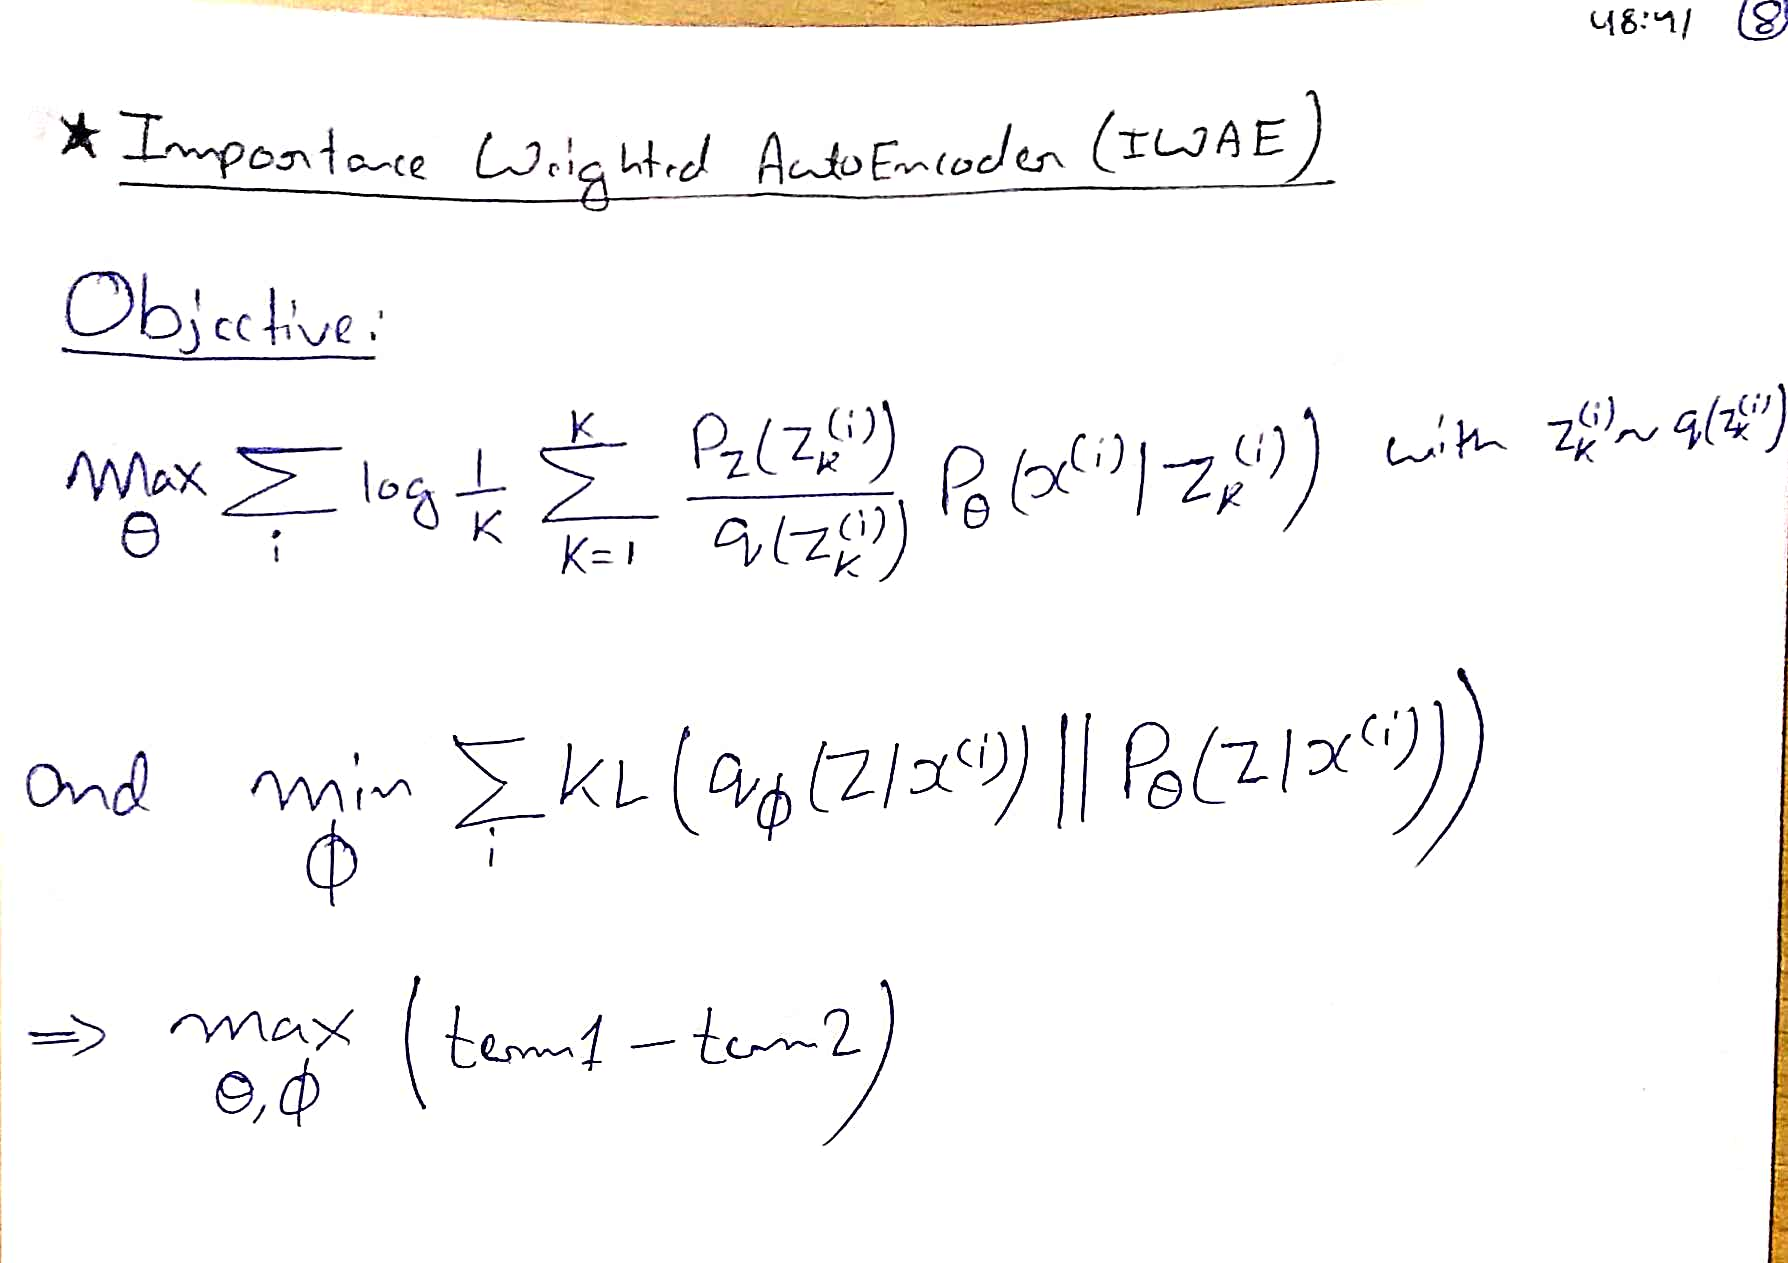 48:41 ⑧
★ Importance Weighted AutoEncoder (IWAE)
Objective:
max_θ Σ_i log 1/K Σ_{k=1}^{K} P_z(z_k^{(i)}) / q(z_k^{(i)}) P_θ(x^{(i)} | z_k^{(i)}) with z_k^{(i)} ~ q(z_k^{(i)})
and min_ϕ Σ_i KL(q_ϕ(z|x^{(i)}) || P_θ(z|x^{(i)}))
=> max_{θ,ϕ} (term1 − term2)